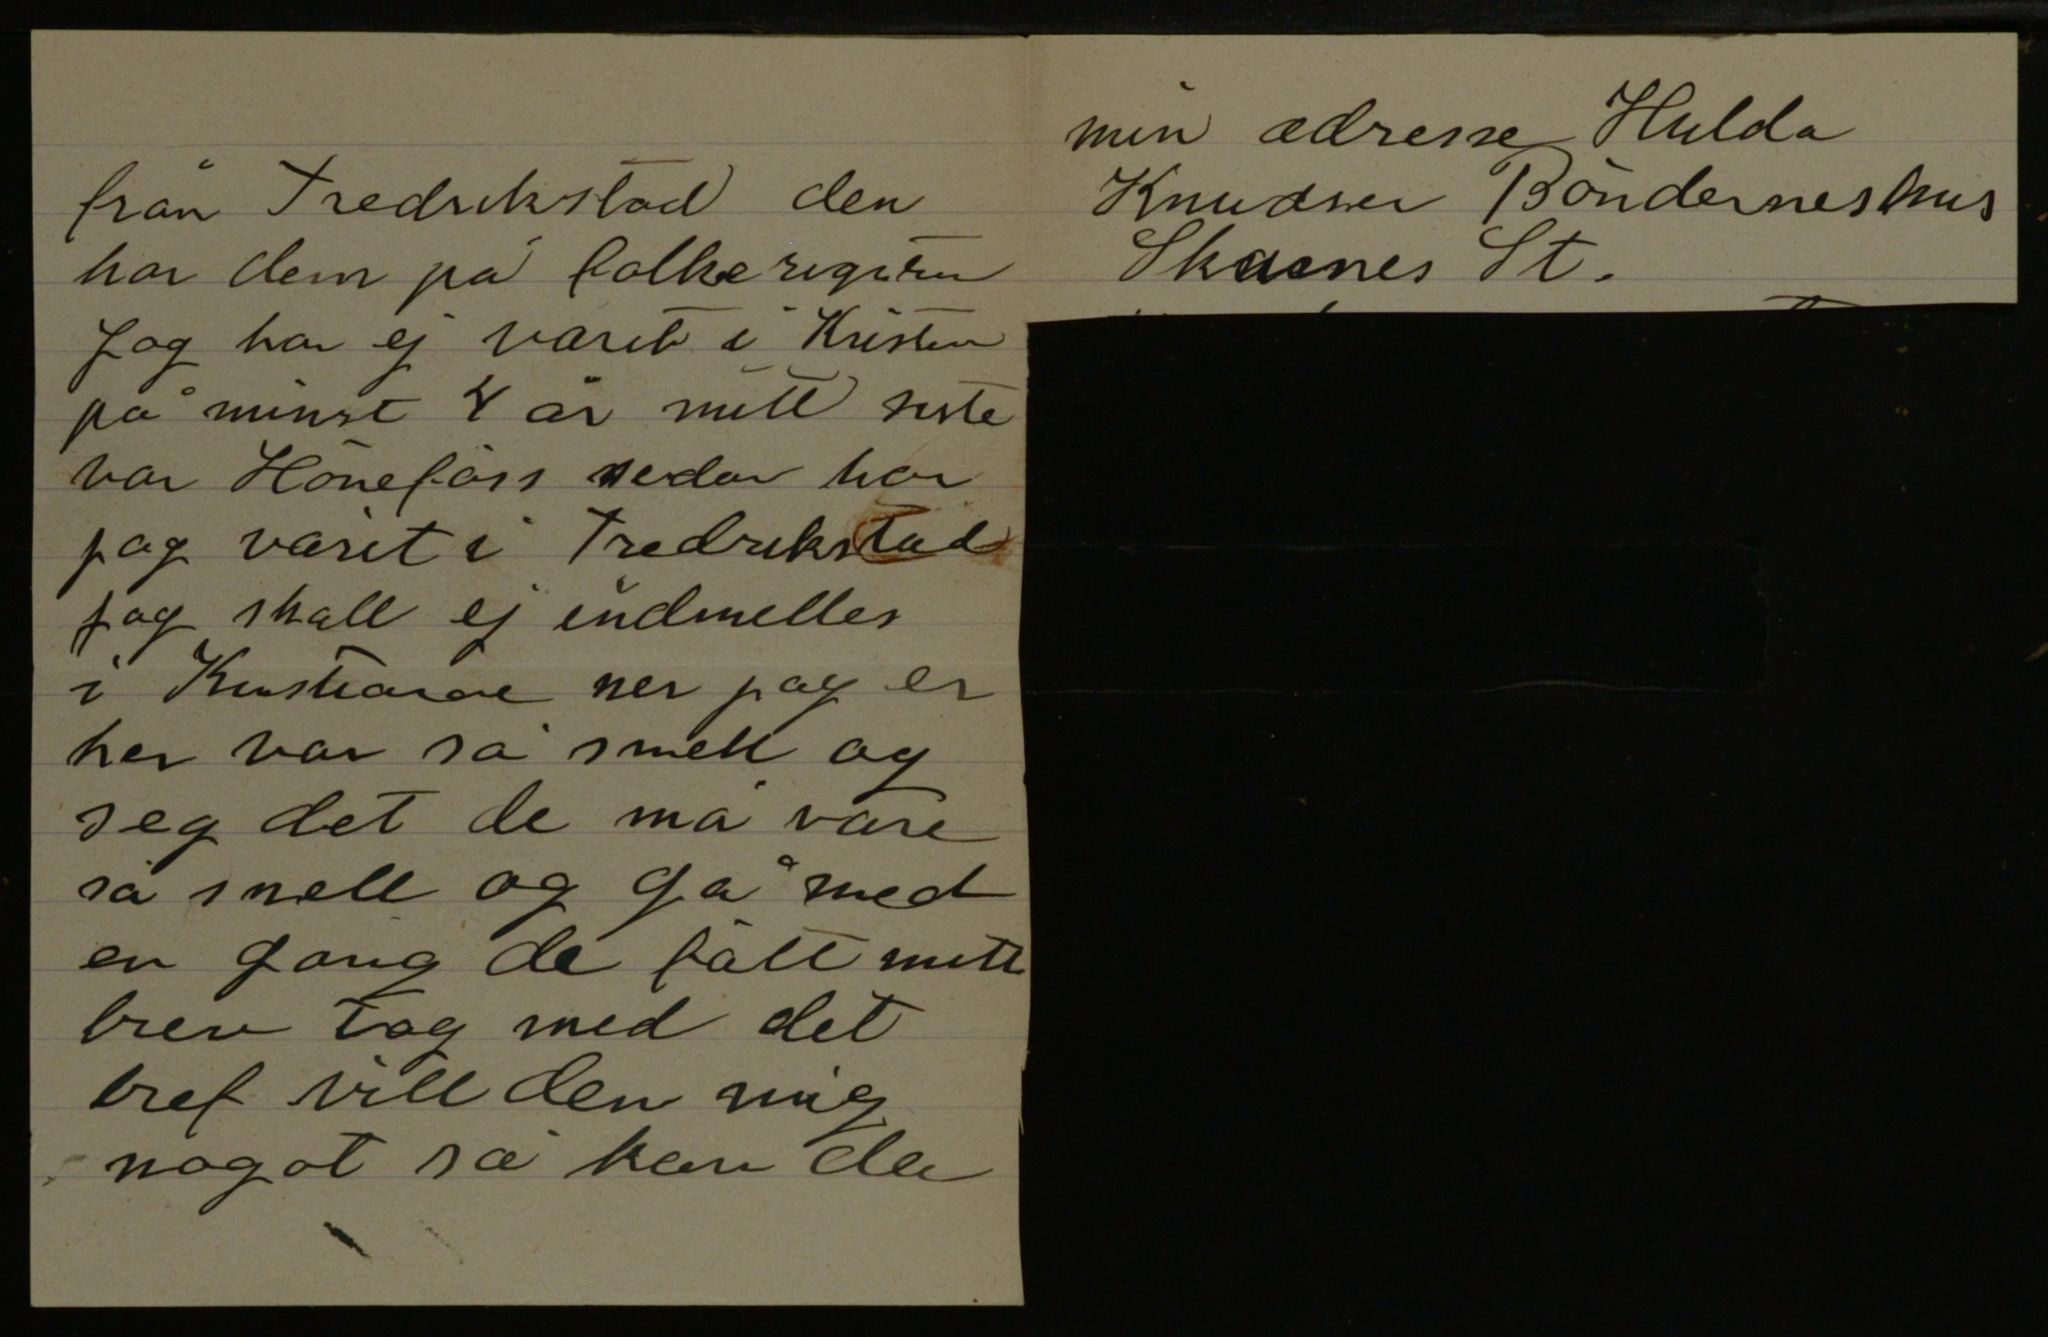 från Fredrikstad den
har dem på folkeregistre
Jag har ej varit i Kristen
på minst 4 år mitt siste
var Hönefoss sedan har
jag varit i Fredrikstad
jag skall ej indmelles
i Kristiania ner jag er
her var så snell og
seg det de må väre
så snell og gå med
en gang de fått mitt
brev tag med det
bref vill den mig
nogot så kan de
min adresse Hulda
Knudsen Böndernes hus
Skarnes St.